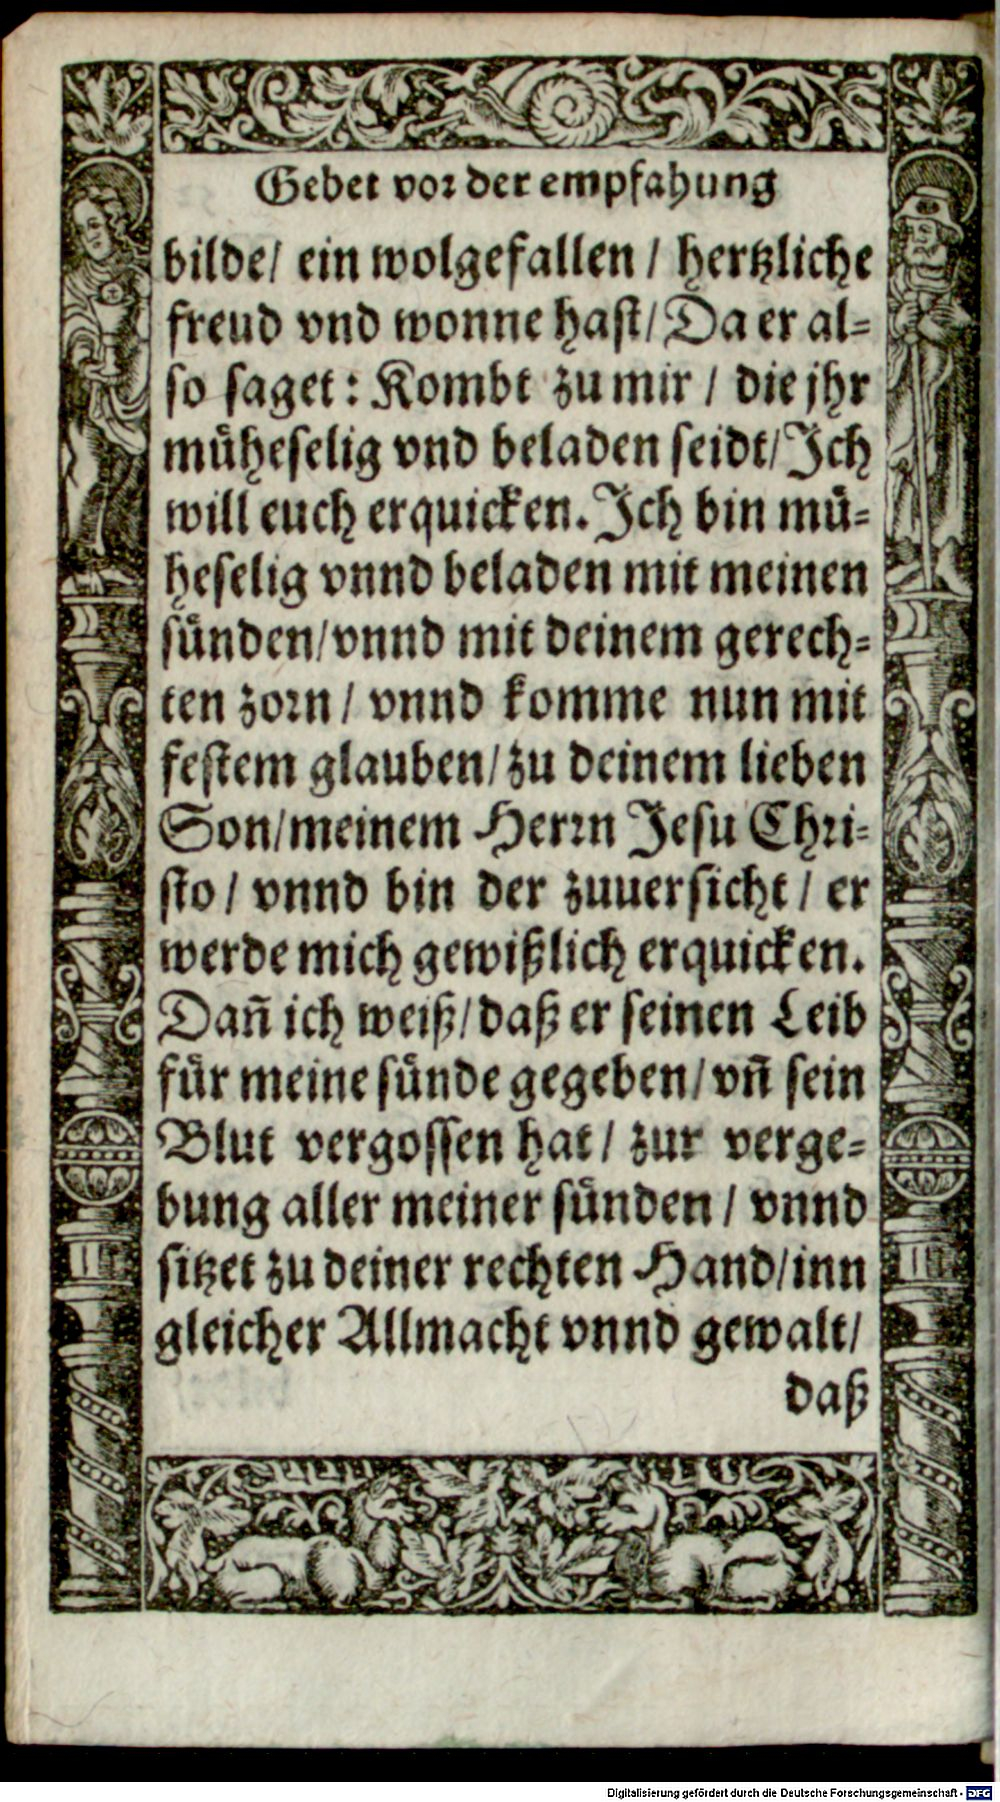 Gebet vor der empfahung
bilde/ ein wolgefallen / hertzliche
freud vnd wonne hast/ Da er al-
so saget: Kombt zu mir / die jhr
müheselig vnd beladen seidt/ Ich
will euch erquicken. Ich bin mü-
heselig vnnd beladen mit meinen
sünden/ vnnd mit deinem gerech-
ten zorn / vnnd komme nun mit
festem glauben/ zu deinem lieben
Son/ meinem Herrn Jesu Chri-
sto / vnnd bin der zuuersicht / er
werde mich gewißlich erquicken.
Dañ ich weiß/ daß er seinen Leib
für meine sünde gegeben/ vñ sein
Blut vergossen hat / zur verge-
bung aller meiner sünden / vnnd
sitzet zu deiner rechten Hand/ inn
gleicher Allmacht vnnd gewalt/
daß
Digitalisierung gefördert durch die Deutsche Forschungsgemeinschaft - DFG